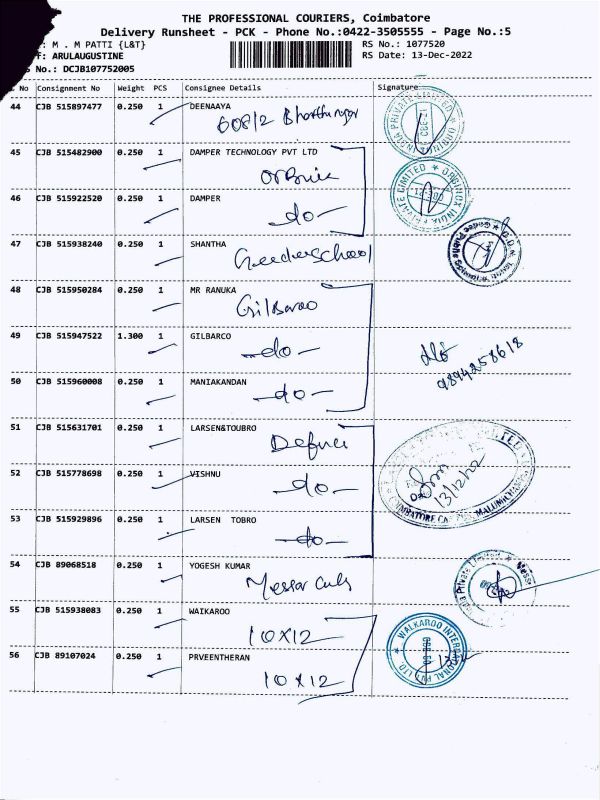 THE PROFESSIONAL COURIERS, Coimbatore
Delivery Runsheet - PCK - Phone No.:0422-3505555 - Page No.:5
: M . M PATTI {L&T} RS No.: 1077520
: ARULAUGUSTINE RS Date: 13-Dec-2022
No.: DCJB107752005
No Consignment No Weight PCS Consignee Details Signature
44 CJB 515897477 0.250 1 DEENAAYA
608/2
45 CJB 515482900 0.250 1 DAMPER TECHNOLOGY PVT LTD
46 CJB 515922520 0.250 1 DAMPER
-do-
47 CJB 515938240 0.250 1 SHANTHA
48 CJB 515950284 0.250 1 MR RANUKA
Gilbarco
49 CJB 515947522 1.300 1 GILBARCO
-do-
9894258618
50 CJB 515960008 0.250 1 MANIAKANDAN
-do-
51 CJB 515631701 0.250 1 LARSEN&TOUBRO
52 CJB 515778698 0.250 1 VISHNU
-do-
13/12/22
53 CJB 515929896 0.250 1 LARSEN TOBRO
-do-
54 CJB 89068518 0.250 1 YOGESH KUMAR
55 CJB 515938083 0.250 1 WAIKAROO
10X12
WALKAROO INTERNATIONAL PVT LTD.
56 CJB 89107024 0.250 1 PRVEENTHERAN
10X12